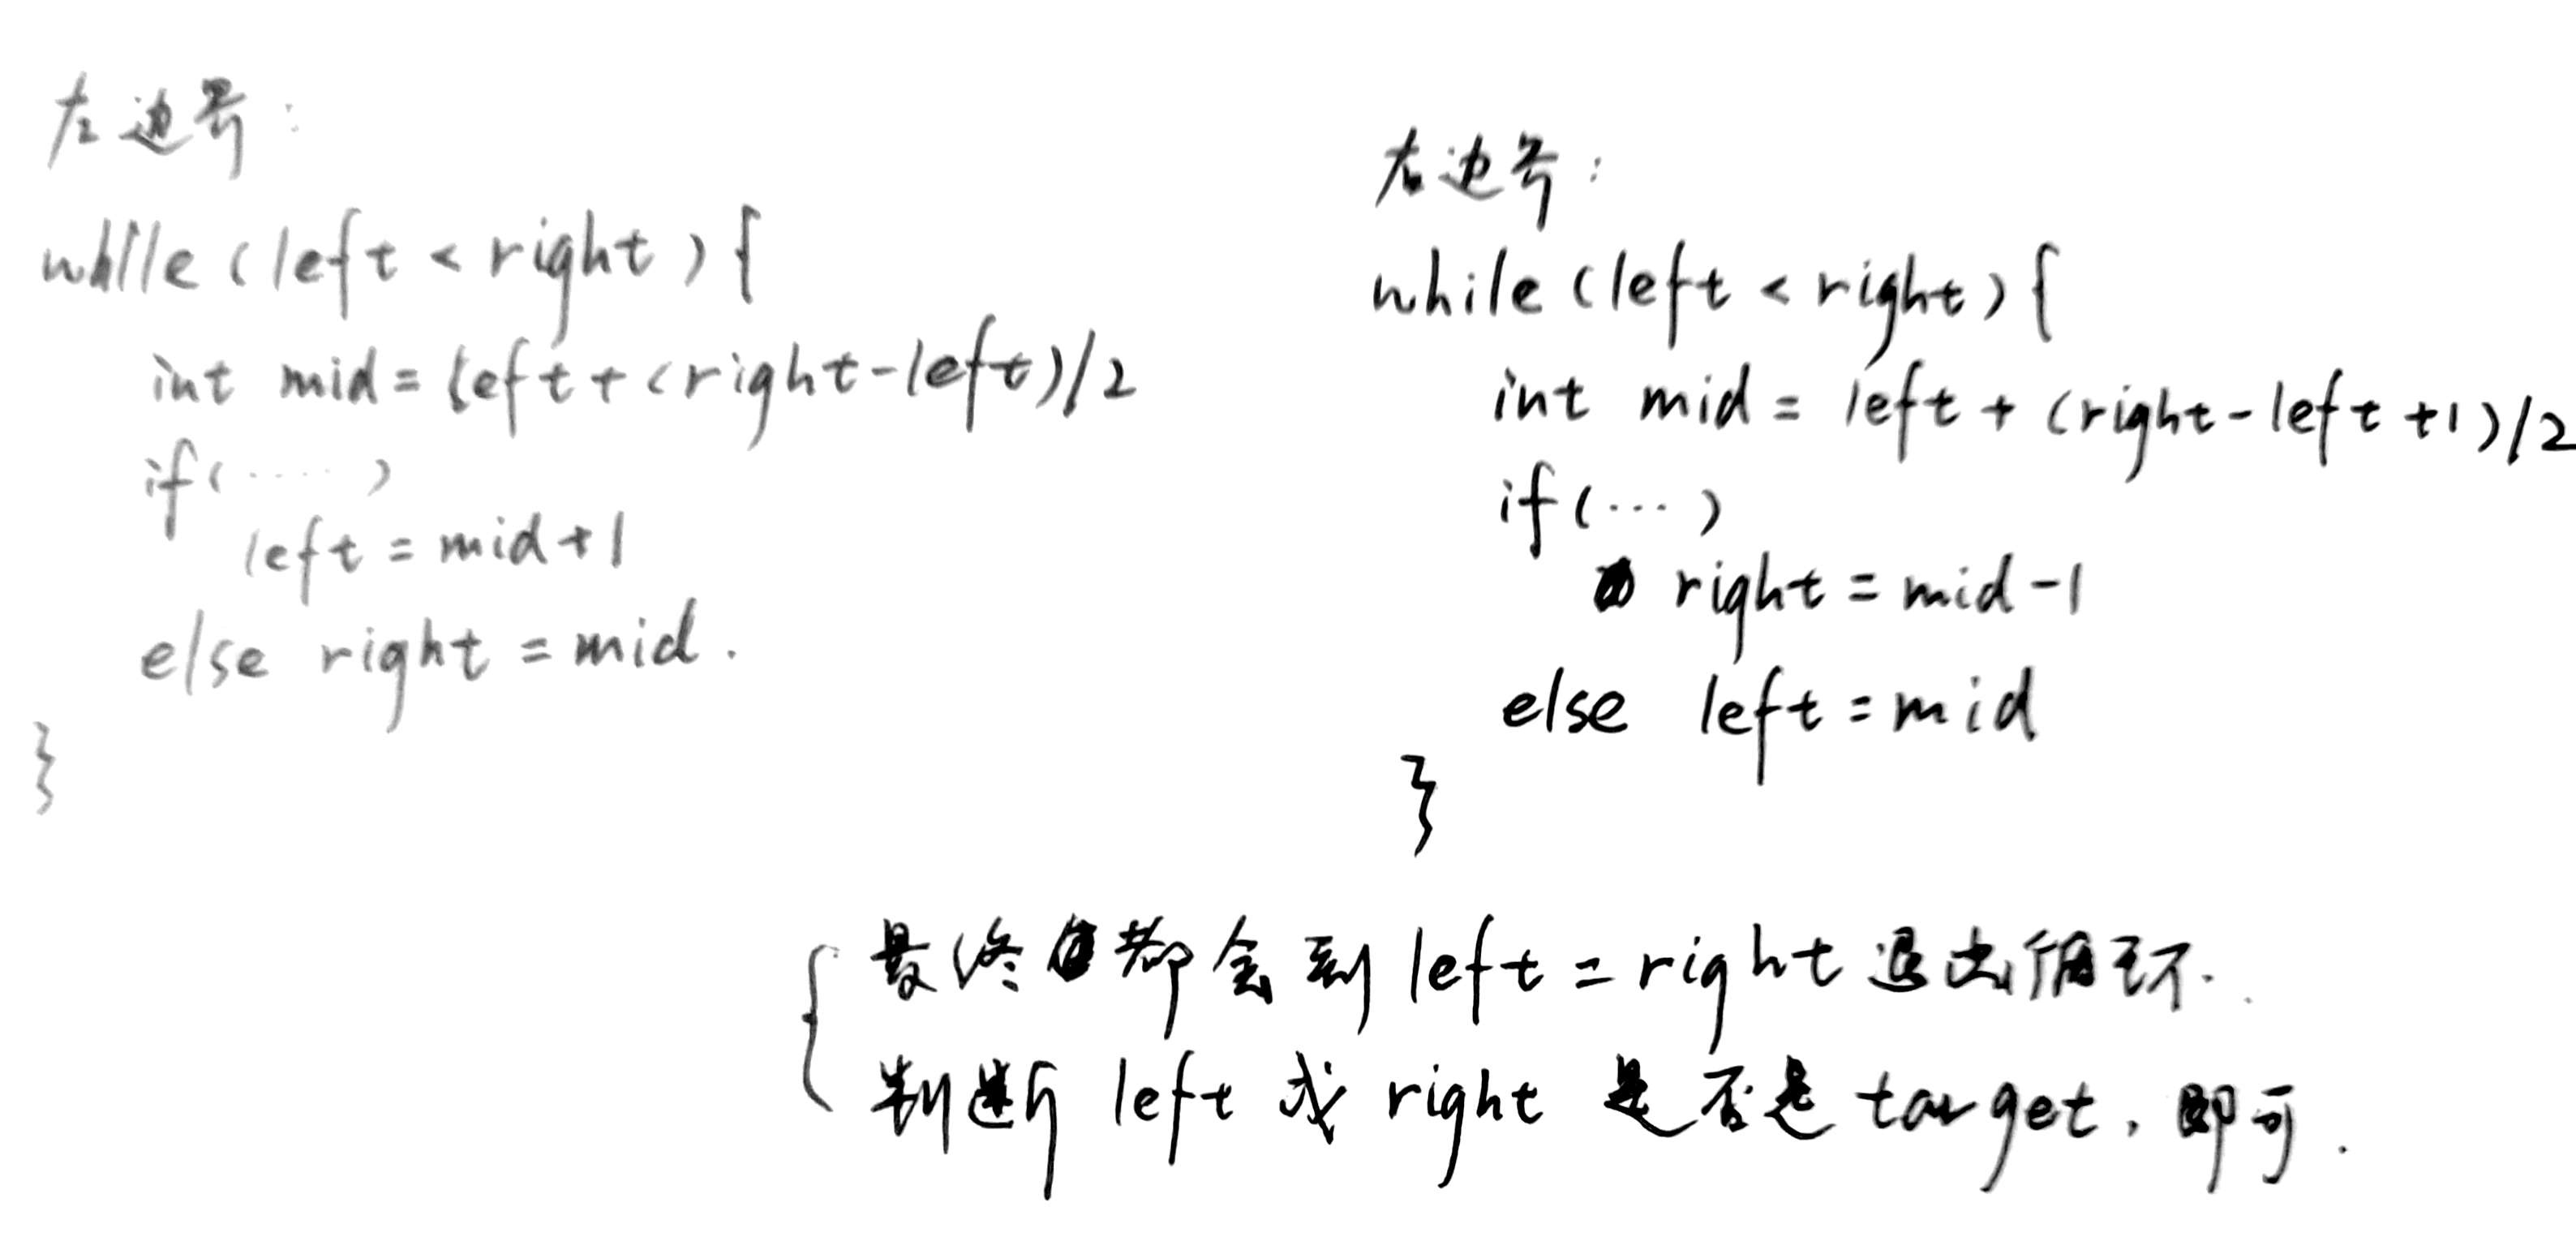 左边界：
while (left < right) {
int mid = left + (right - left)/2
if (·····)
left = mid + 1
else right = mid.
}
右边界：
while (left < right) {
int mid = left + (right - left +1)/2
if (···)
right = mid - 1
else left = mid
}
最终都会到 left = right 退出循环.
判断 left 或 right 是否是 target, 即可.